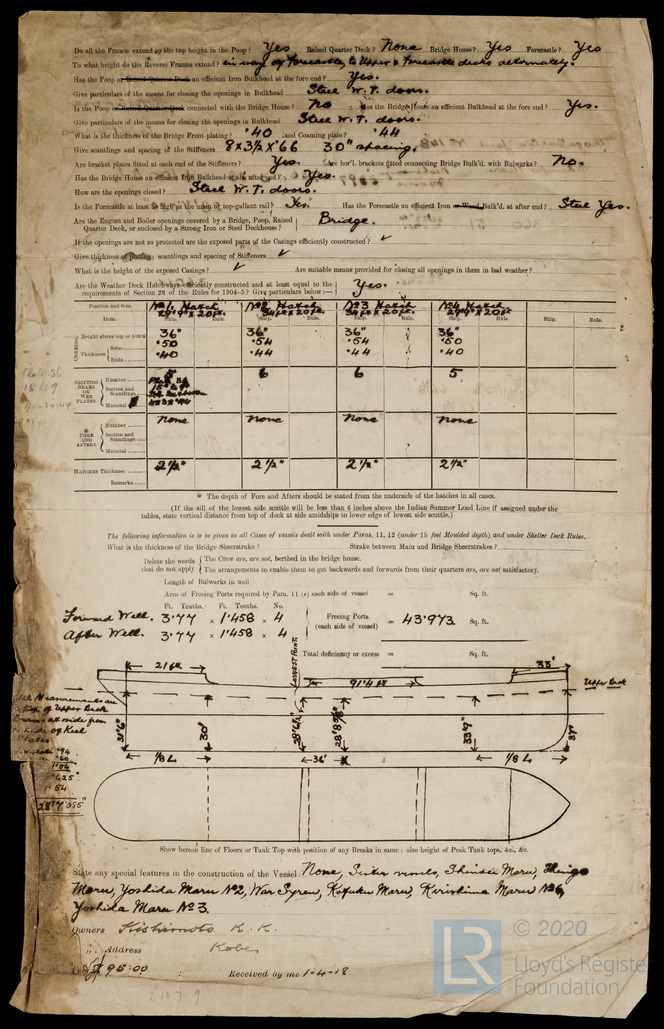 Do all the Frames extend to the top height in the Poop? Yes Raised Quarter Deck? None Bridge House? Yes Forecastle? Yes
To what height do the Reverse Frames extend? in way of Forecastle, to Upper & Forecastle decks alternately.
Has the Poop or Raised Quarter Deck an efficient Iron Bulkhead at the fore end? Yes.
Give particulars of the means for closing the openings in Bulkhead Steel W.T. doors.
Is the Poop or Raised Quarter Deck connected with the Bridge House? No Has the Bridge House an efficient Bulkhead at the fore end? Yes.
Give particulars of the means for closing the openings in Bulkhead Steel W.T. doors.
What is the thickness of the Bridge Front plating? ·40 and Coaming plate? ·44
Give scantlings and spacing of the Stiffeners 8 x 3½ x ·66 30" spacing.
Are bracket plates fitted at each end of the Stiffeners? Yes. Are hor'l. brackets fitted connecting Bridge Bulk'd. with Bulwarks? No.
Has the Bridge House an efficient Iron Bulkhead at the after end? Yes.
How are the openings closed? Steel W.T. doors.
Is the Forecastle at least as high as the main or top-gallant rail? Has the Forecastle an efficient Iron or Wood Bulk'd. at after end? Steel Yes.
Are the Engine and Boiler openings covered by a Bridge, Poop, Raised Quarter Deck, or enclosed by a Strong Iron or Steel Deckhouse? Bridge.
If the openings are not so protected are the exposed parts of the Casings efficiently constructed? ✓
Give thickness of plating; scantlings and spacing of Stiffeners ✓
What is the height of the exposed Casings? ✓ Are suitable means provided for closing all openings in them in bad weather?
Are the Weather Deck Hatchways efficiently constructed and at least equal to the requirements of Section 28 of the Rules for 1904-5? Give particulars below:— Yes.
Position and Size. No 1 Hatch No 2 Hatch No 3 Hatch No 4 Hatch
Item. Ship. Rule. Ship. Rule. Ship. Rule. Ship. Rule. Ship. Rule.
COAMINGS Height above top of deck 36" 36" 36" 36"
Thickness Sides ·50 ·54 ·54 ·50
Ends ·40 ·44 ·44 ·40
SHIFTING BEAMS OR WEB PLATES Number 5 6 6 5
Section and Scantlings
Material
* FORE AND AFTERS. Number none none none none
Section and Scantlings
Material
HATCHES Thickness 2½" 2½" 2½" 2½"
Remarks
* The depth of Fore and Afters should be stated from the underside of the hatches in all cases.
(If the sill of the lowest side scuttle will be less than 6 inches above the Indian Summer Load Line if assigned under the
tables, state vertical distance from top of deck at side amidships to lower edge of lowest side scuttle.)
The following information is to be given in all Cases of vessels dealt with under Paras. 11, 12 (under 15 feet Moulded depth) and under Shelter Deck Rules.
What is the thickness of the Bridge Sheerstrake? Strake between Main and Bridge Sheerstrakes?
Delete the words that do not apply The Crew are, are not, berthed in the bridge house.
The arrangements to enable them to get backwards and forwards from their quarters are, are not satisfactory.
Length of Bulwarks in well
Area of Freeing Ports required by Para. 11 (e) each side of vessel = Sq. ft.
Ft. Tenths. Ft. Tenths. No.
Forward Well. 3·77 × 1·458 × 4
After Well. 3·77 × 1·458 × 4
Freeing Ports (each side of vessel) = 43·973 Sq. ft.
Total deficiency or excess = Sq. ft.
LOWEST POINT.
21 ft. 91'4 35' Upper Deck
31'6" 30' 33'9" 37'
⅛ L 36' ⅛ L
Show hereon line of Floors or Tank Top with position of any Breaks in same; also height of Peak Tank tops, &c., &c.
State any special features in the construction of the Vessel None, Sister vessels,
Maru, Yoshida Maru No2, War Syren, Kofuku Maru, Kirishima Maru No6,
Yoshida Maru No 3.
Owners Kishimoto K.K.
" Address Kobe
95:00 Received by me 1-4-18
LR © 2020
Lloyd's Register
Foundation